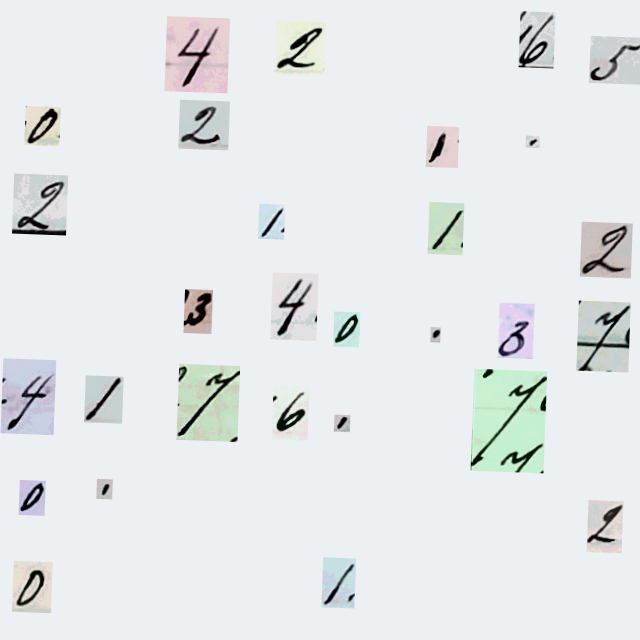 4 2 6 5
0 2 1 .
2 1. 1. 2
3 4 0 . 3 7
4 1 7 6 . 7
0 . 2
0 1.